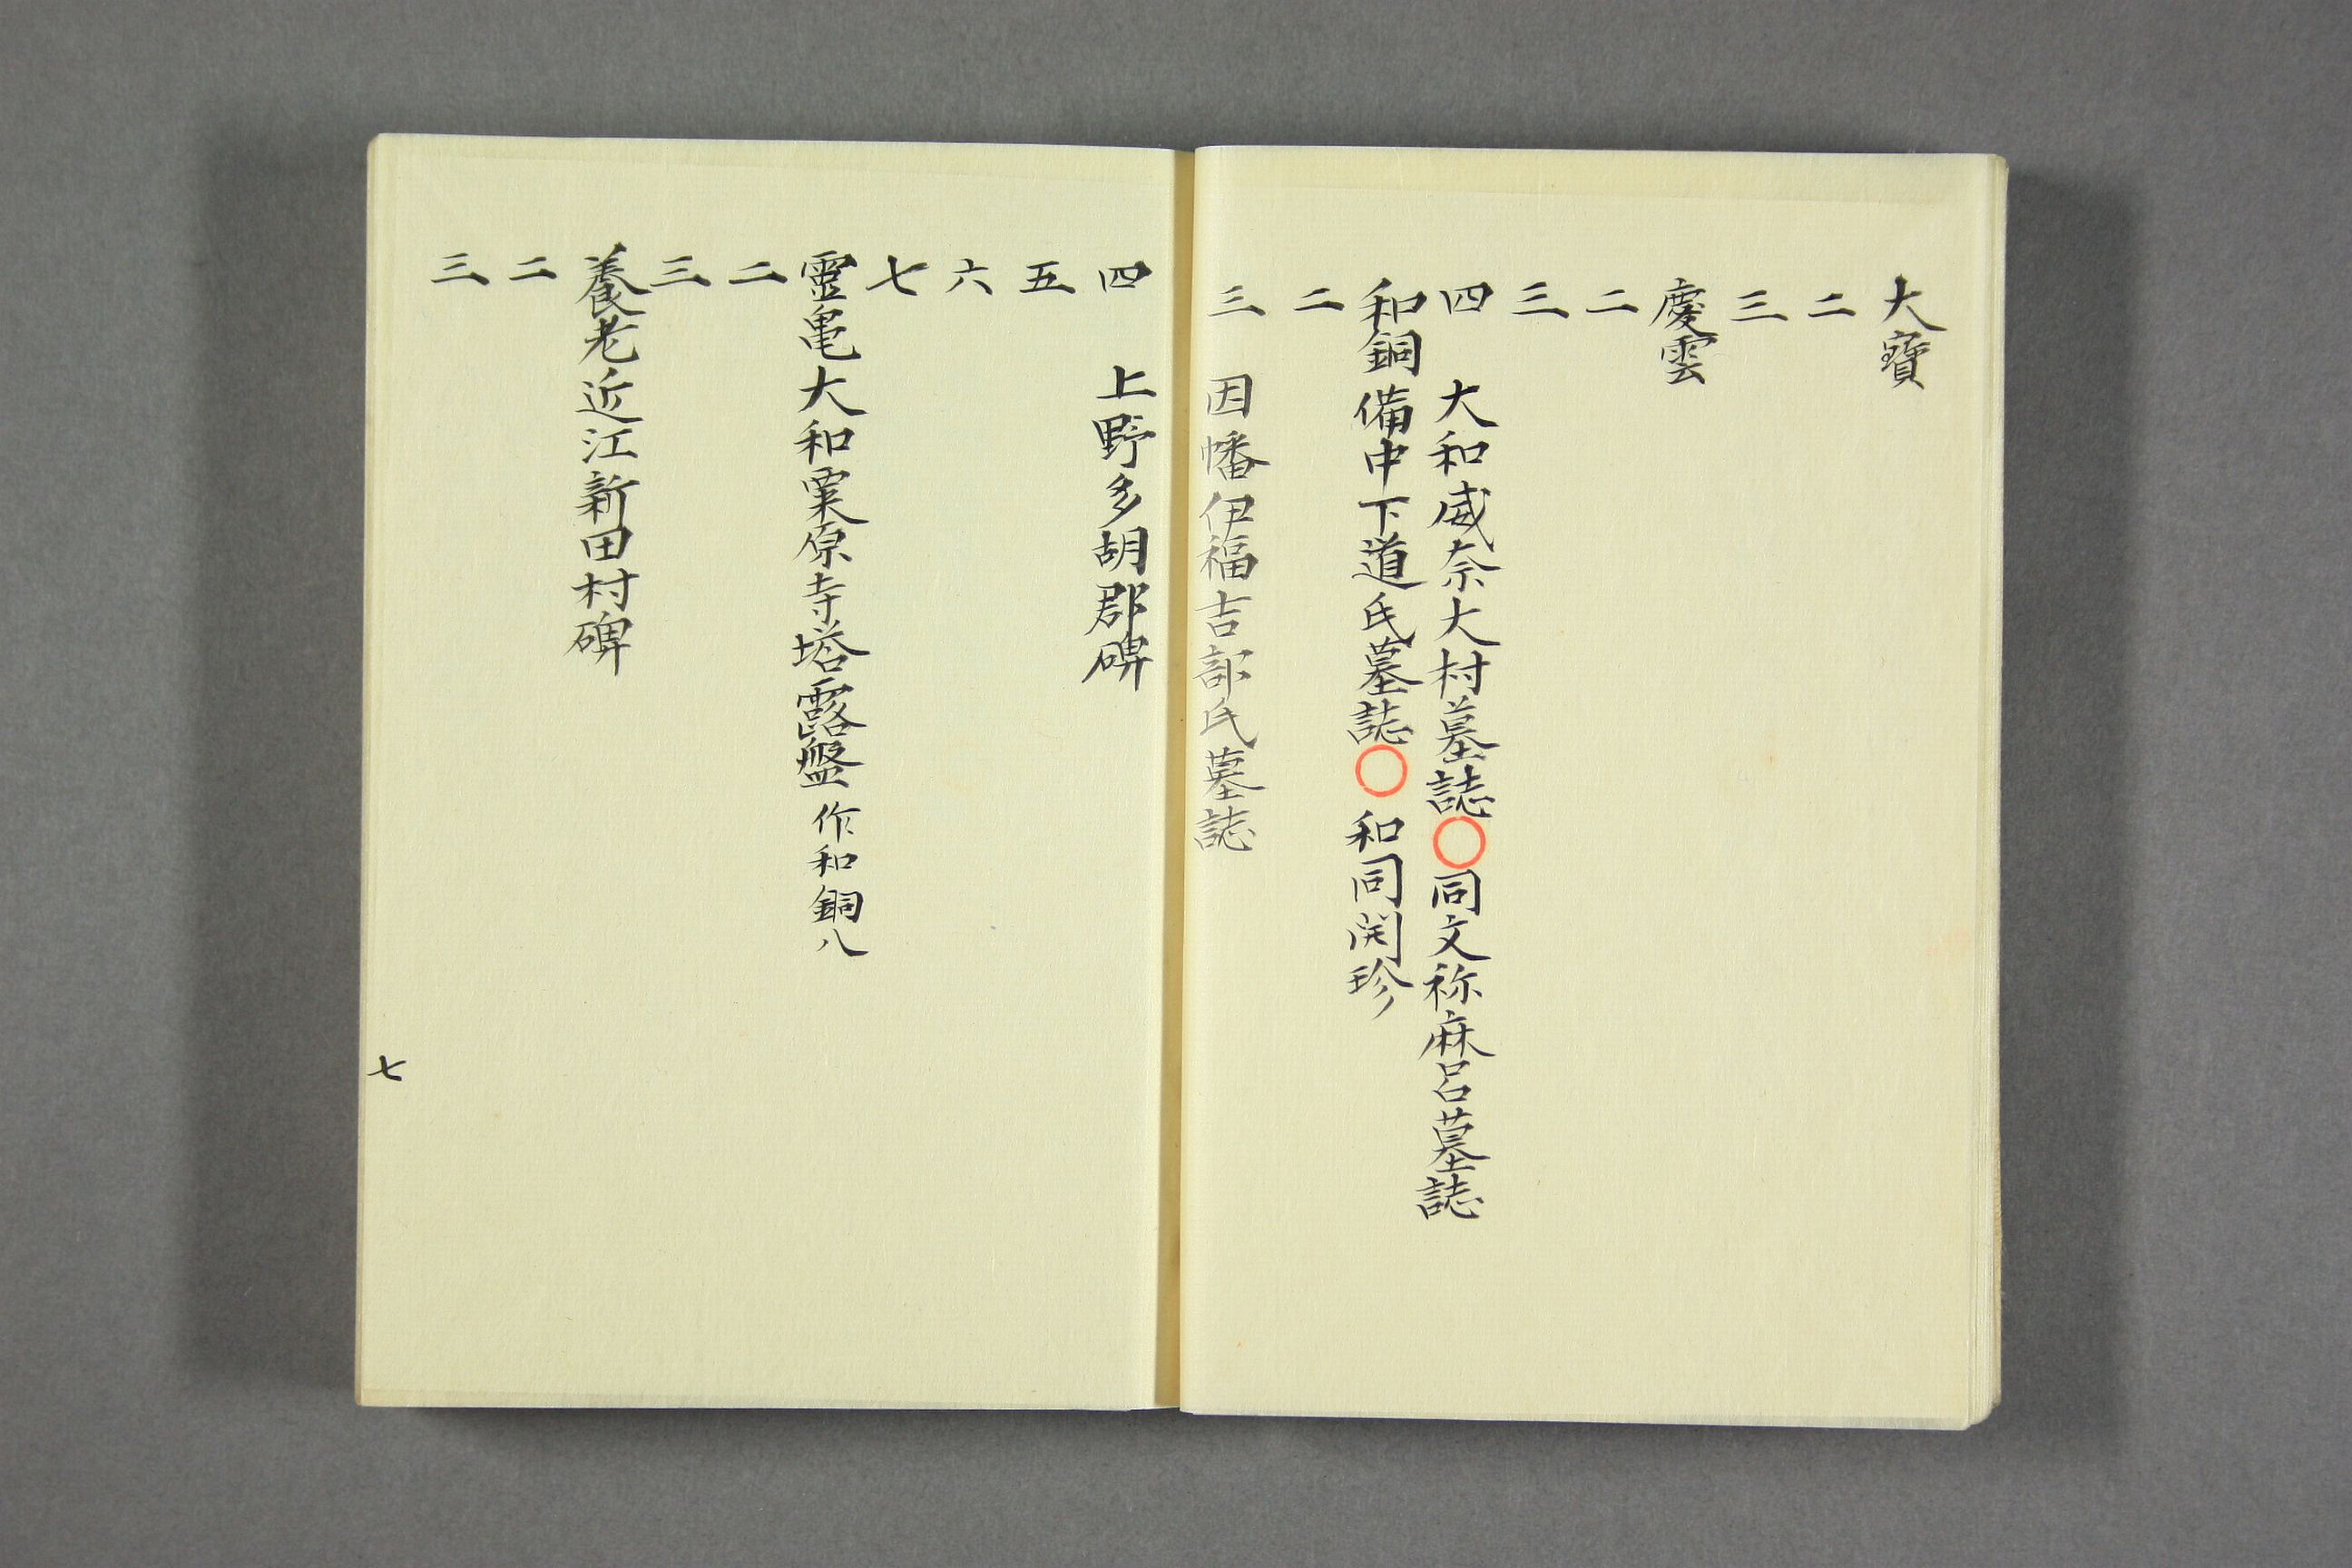 大寶
二
三
慶雲
二
三
四 大和威奈大村墓誌〇同文祢麻呂墓誌
和銅 備中下道氏墓誌〇 和同開珍
二
三 因幡伊福吉部氏墓誌
四 上野多胡郡碑
五
六
七
靈亀 大和粟原寺塔露盤 作和銅八
二
三
養老 近江新田村碑
二
三
七